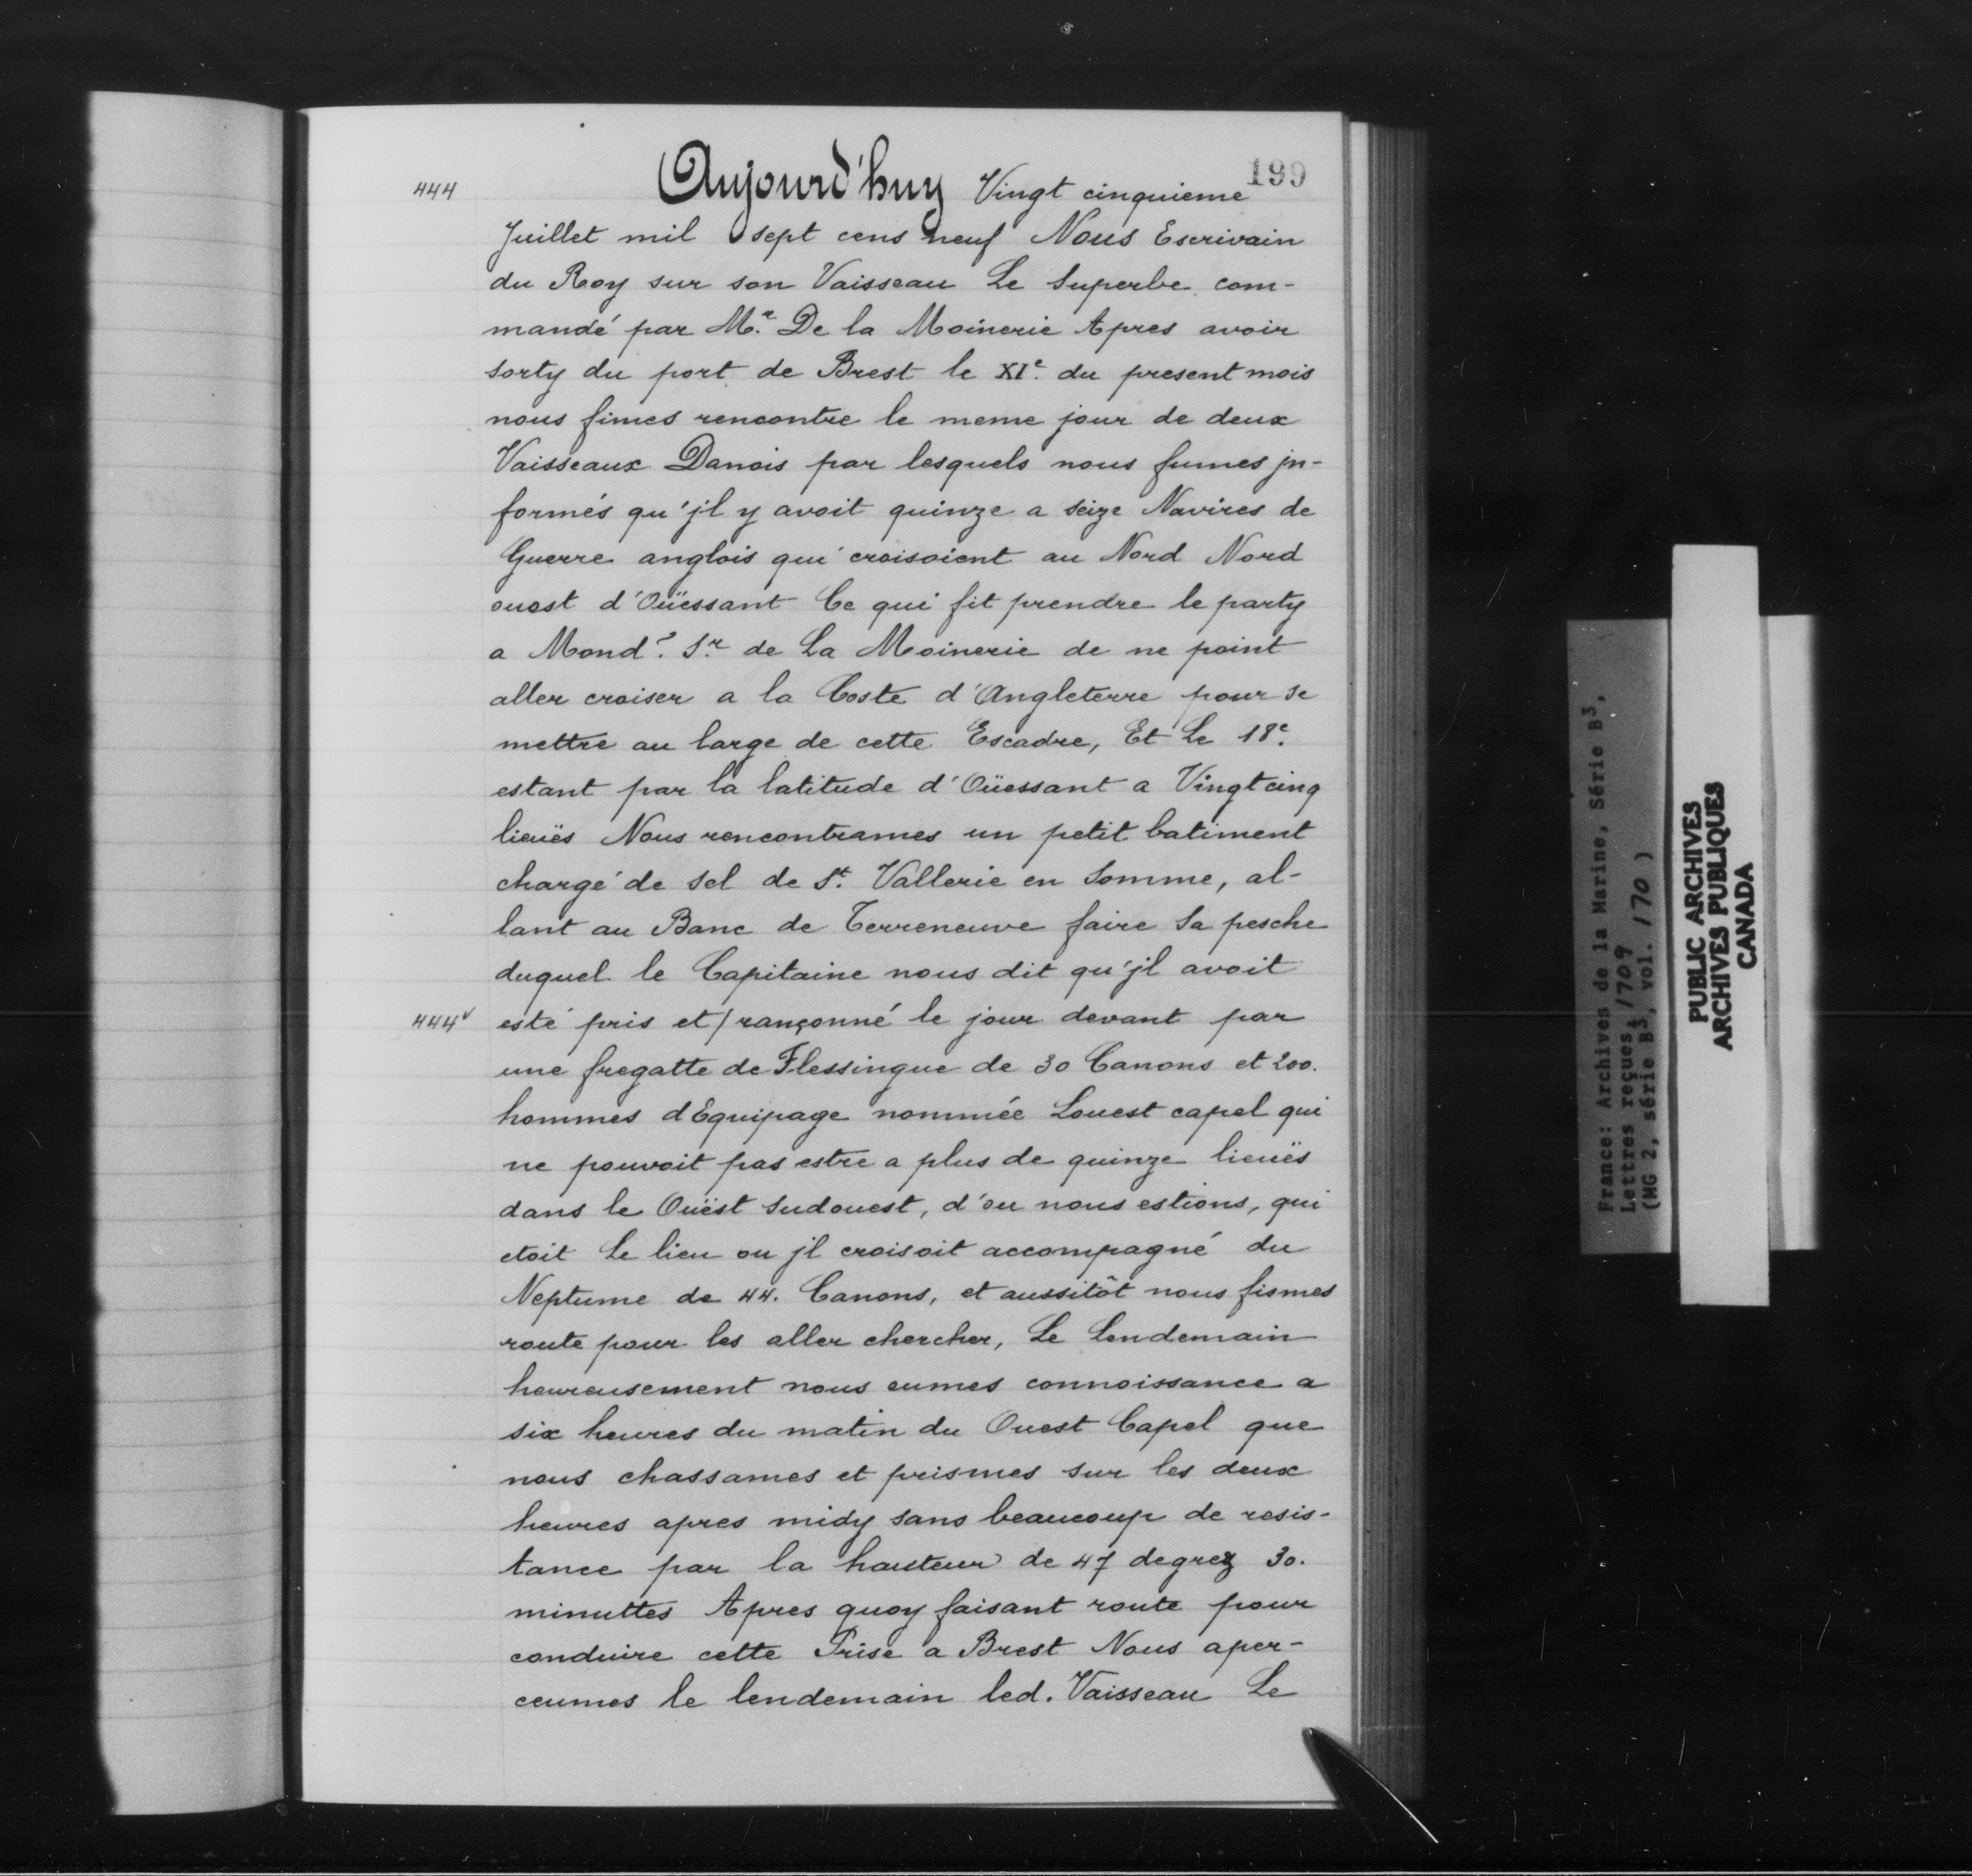 199
444
Aujourd'huy Vingt cinquieme
Juillet mil sept cens neuf Nous Escrivain
du Roy sur son Vaisseau Le Superbe com-
mandé par Mr. De la Moinerie Apres avoir
sorty du port de Brest le XIe. du present mois
nous fimes rencontre le meme jour de deux
Vaisseaux Danois par lesquels nous fumes jn-
formés qu'jl y avoit quinze a seize Navires de
Guerre anglois qui croisoient au Nord Nord
ouest d'Oüessant Ce qui fit prendre le party
a Mond?. Sr. de La Moinerie de ne point
aller croiser a la Coste d'Angleterre pour se
mettre au large de cette Escadre, Et Le 18e.
estant par la latitude d'Oüessant a Vingt cinq
lieuës Nous rencontrames un petit batiment
chargé de sel de St. Vallerie en Somme, al-
lant au Banc de Terreneuve faire Sa pesche
duquel le Capitaine nous dit qu'jl avoit
444v
esté pris et/rançonné le jour devant par
une fregatte de Flessingue de 30 Canons et 200.
hommes d'Equipage nommée Louest capel qui
ne pouvoit pas estre a plus de quinze lieuës
dans le Ouëst Sudouest, d'ou nous estions, qui
etoit Le lieu ou jl croisoit accompagné du
Neptume de 44. Canons, et aussitôt nous fismes
route pour les aller chercher, Le Lendemain
heureusement nous eumes connoissance a
six heures du matin du Ouest Capel que
nous chassames et prismes sur les deux
heures apres midy sans beaucoup de resis-
tance par la hauteur de 47 degrez 30.
minuttes Apres quoy faisant route pour
conduire cette Prise a Brest Nous aper-
ceumes le lendemain led. Vaisseau Le
France: Archives de la Marine, Série B3,
Lettres reçues, 1709
(MG 2, série B3, vol. 170 )
PUBLIC ARCHIVES
ARCHIVES PUBLIQUES
CANADA